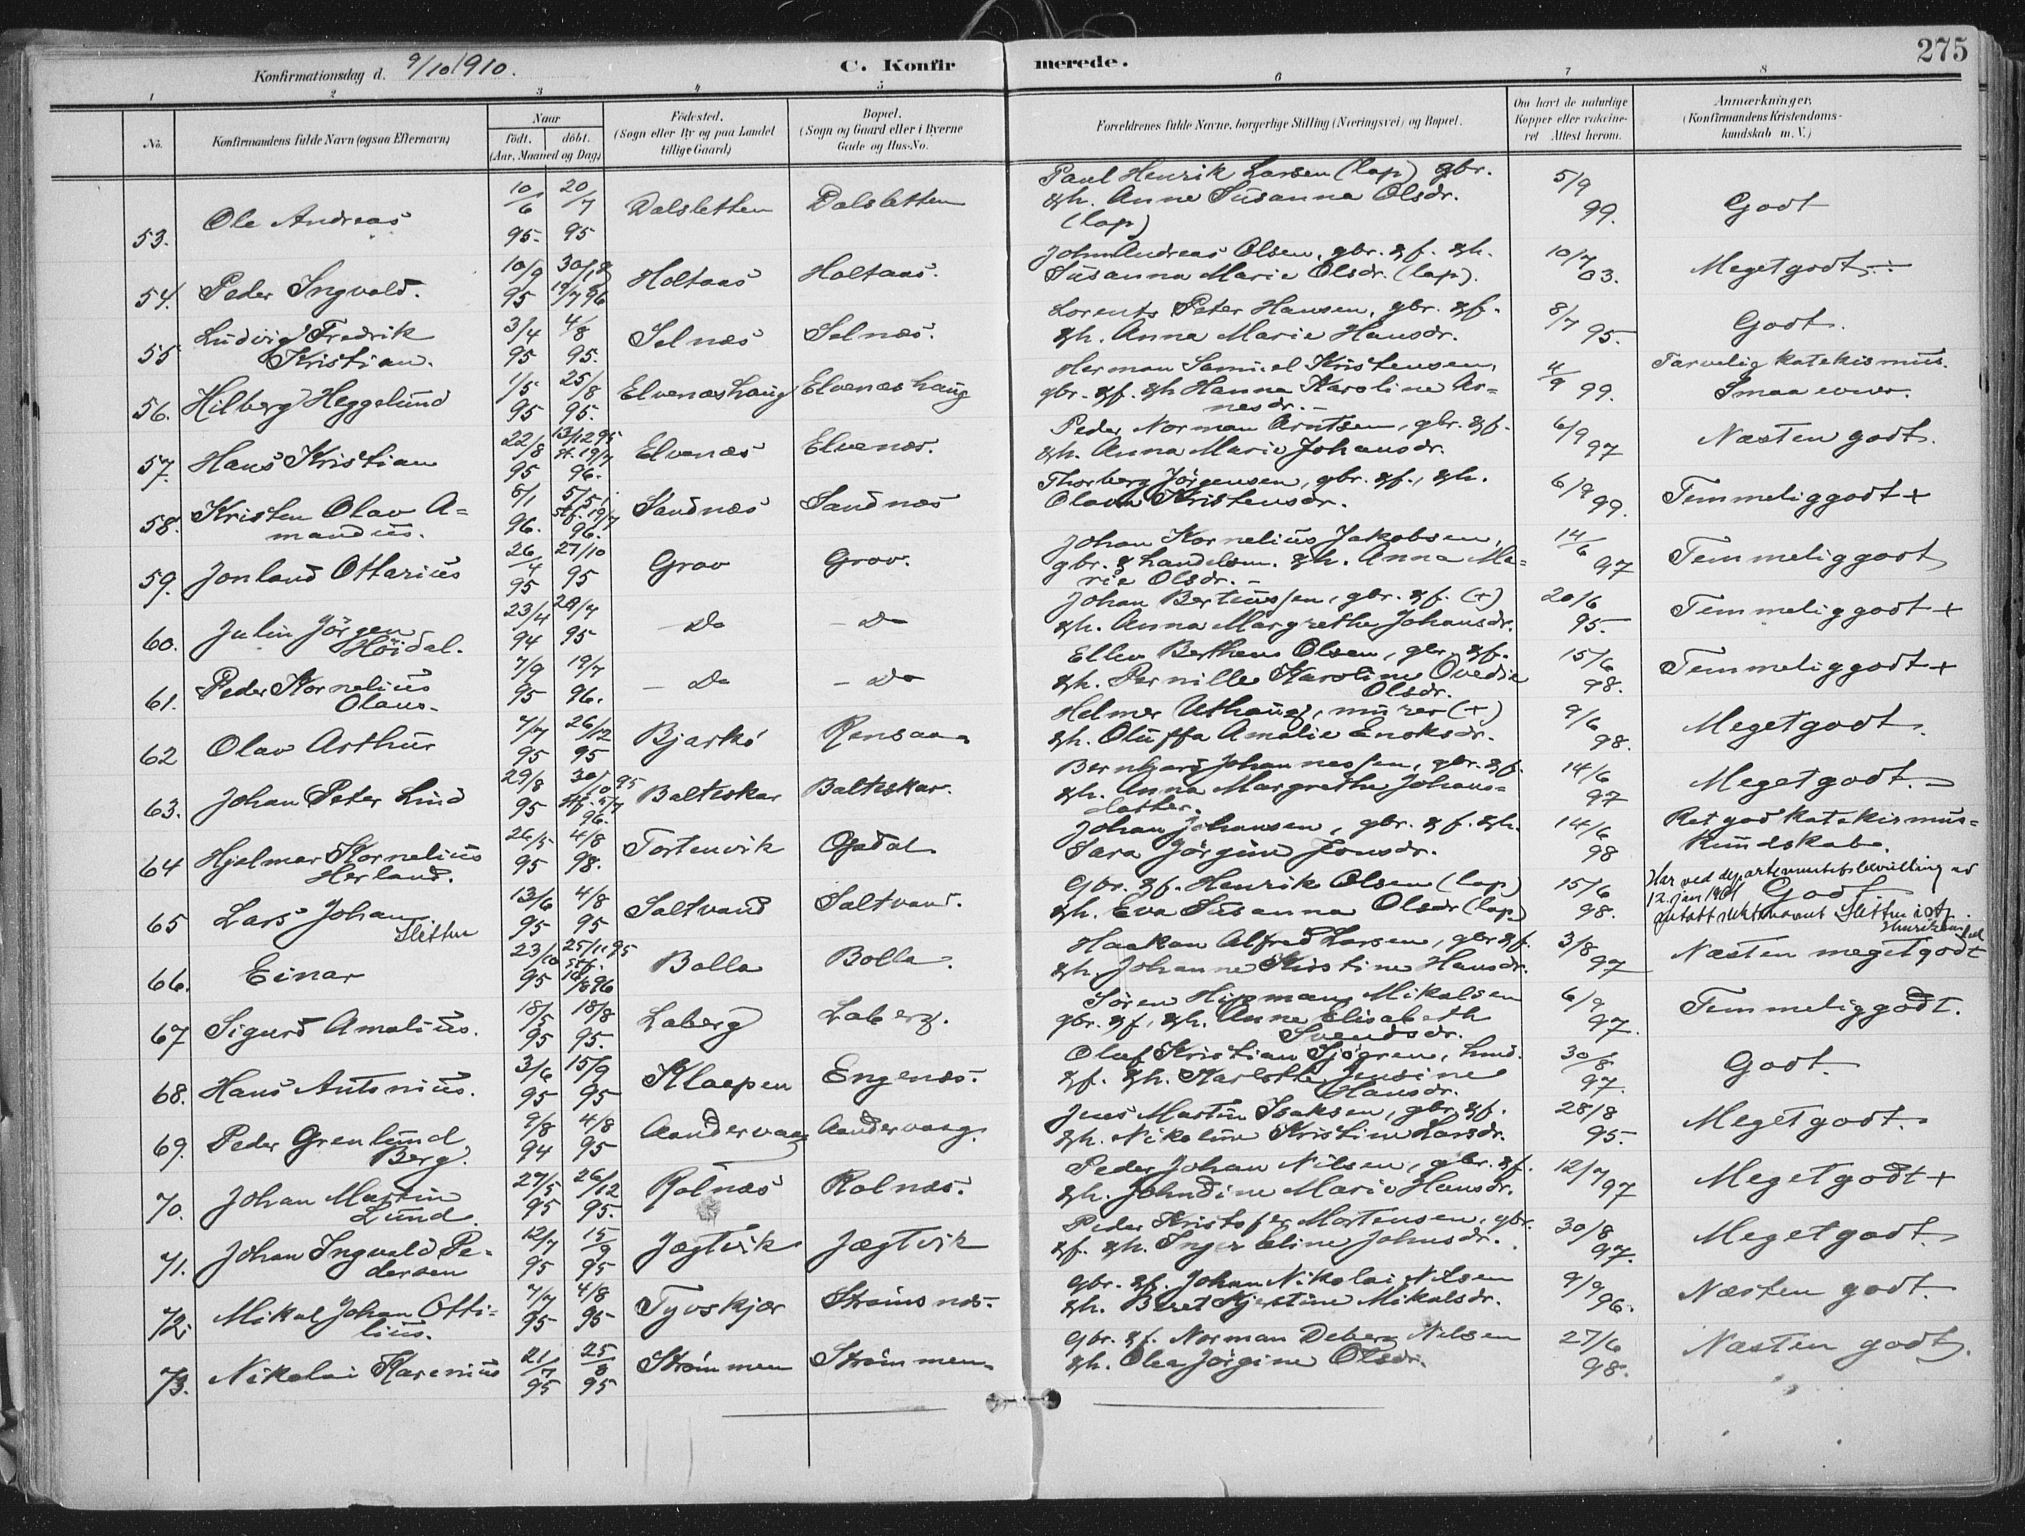 275
Konfirmationsdag d. 9/10 1910.
C. Konfirmerede.
1 2 3 4 5 6 7 8
No. Konfirmandens fulde Navn (ogsaa Efternavn) Naar født, døbt. (Aar, Maaned og Dag) Fødested. (Sogn eller By og paa Landet tillige Gaard) Bopæl. (Sogn og Gaard eller i Byerne Gade og Hus-No. Forældrenes fulde Navne, borgerlige Stilling (Næringsvei) og Bopæl. Om havt de naturlige Kopper eller vaccineret. Attest herom. Anmærkninger. (Konfirmandens Kristendomskundskab m. V.)
53. Ole Andreas 10/6 95. 20/7 95 Dalsletten Dalsletten Paul Henrik Larsen (lap) gbr.
&h. Anne Susanna Olsdr.
(lap) 5/9 99. Godt
54. Peder Ingvald. 10/9 95 30/12 19/7 96 Holtaas Holtaas. John Andreas Olsen, gbr. &f. &h.
Susanna Marie Olsdr. (lap). 10/7 03. Meget godt
55 Ludvig Fredrik
Kristian. 3/4 95 4/8 95. Selnæs Selnæs. Lorents Peter Hansen, gbr. &f.
&h. Anna Marie Hansdr. 8/7 95. Godt.
56. Hilberg Heggelund 1/5 95 25/8 95. Elvenæshaug Elvenæshaug Herman Samuel Kristensen,
gbr. &f. &h Hanna Karoline Ar-
nesdr. 4/9 99. Tarvelig katekismus.
Smaa evner.
57. Hans Kristian 22/8 95 13/12 95 st. 19/7 96. Elvenæs Elvenæs. Peder Norman Arntsen, gbr. &f.
&h. Anna Marie Johansdr. 6/9 97 Næsten godt.
58. Kristen Olav A-
mandius. 8/1 96. 5/5, stf. 19/7 96. Sandnæs Sandnæs Thorberg Jørgensen, gbr. &f., &h.
Olava Kristensdr. 6/9 99. Temmelig godt +
59. Jonland Ottarius 26/4 95 27/10 95 Grov Grov. Johan Kornelius Jakobsen,
gbr. & handelsm. &h. Anna Ma-
rie Olsdr. 14/6 97 Temmelig godt
60. Julin Jørgen
Høidal. 23/4 94 28/7 95 - Do - Do Johan Berteussen, gbr. &f. (+)
&h. Anna Margrethe Johansdr. 20/6 95. Temmelig godt +
61. Peder Kornelius
Olaus. 7/9 95 19/7 96. - Do - Do Ellev Bertheus Olsen, gbr. &f.
&h. Pernille Karoline Ovedie
Olsdr. 15/6 98. Temmelig godt +
62 Olav Arthur 7/7 95 26/12 95 Bjarkø Rensaa Helmer Uthaug, murer (+)
&h. Oluffa Amalie Enoksdr. 9/6 98. Meget godt.
63. Johan Peter Lind 29/8 95 30/10 95 stf. 5/7 96. Balteskar Balteskar. Bernhard Johannessen, gbr. &f.
&h. Anna Margrethe Johans-
datter. 14/6 97 Meget godt.
64 Hjalmar Kornelius
Herland. 26/5 95 4/8 98. Tortenvik Gadal Johan Johansen, gbr. &f. &h.
Sara Jørgine Jonsdr. 14/6 98 Ret god katekismus-
kundskab.
65 Lars Johan
Sletten 13/6 95 4/8 95 Saltvand Saltvand. Gbr. &f. Henrik Olsen (lap)
&h. Eva Susanna Olsdr (lap) 15/6 98. Har ved departementsbevilling ad
12. jan Godt.
antatt slektsnavnet Sletten
66. Einar 23/10 95 25/11 95 stf. 10/8 96 Bolla Bolla. Haakan Alfred Larsen, gbr &f.
&h. Johanne Kristine Hansdr. 3/8 97 Næsten meget godt
67 Sigurd Amalius. 18/5 95 18/8 95. Laberg Laberg. Søren Hipman Mikalsen
gbr. &f, &h. Anne Elisabeth
Svendsdr. 6/9 97. Temmelig godt.
68. Hans Antonius. 3/6 95 15/9 95 Klaapen Engenæs. Olaf Kristian Sjøgren, hmd.
&f. &h. Karlotha Jensine
Hansdr. 30/8 97. Godt.
69. Peder Grenlund
Berg. 9/8 94 4/8 95 Aandervaag Aandervaag. Jens Martin Isaksen, gbr. &f.
&h. Nikoline Kristine Larsdr. 28/8 95. Meget godt.
70. Johan Martin
Lund. 27/5 95 26/12 95. Rolnæs Rolnæs. Peder Johan Nilsen, gbr. &f.
&h. Johndine Marie Hansdr. 12/7 97 Meget godt +
71. Johan Ingvald Pe-
dersen 12/7 95 15/9 95 Jægtvik Jægtvik Peder Kristofer Mortensen, gbr.
&f. &h. Inger Eline Johnsdr. 30/8 97. Meget godt.
72. Mikal Johan Otti-
lius. 7/7 95 4/8 95 Tyvskjær Strømsnæs. Gbr. &f. Johan Nikolai Nilsen
&h. Beret Kjerstine Mikalsdr. 9/9 96. Næsten godt.
73. Nikolai Karenius 21/7 95 25/8 95 Strømmen Strømmen. Gbr. &f. Norman Deberg Nilsen
&h. Olea Jørgine Olsdr. 27/6 98. Næsten godt.